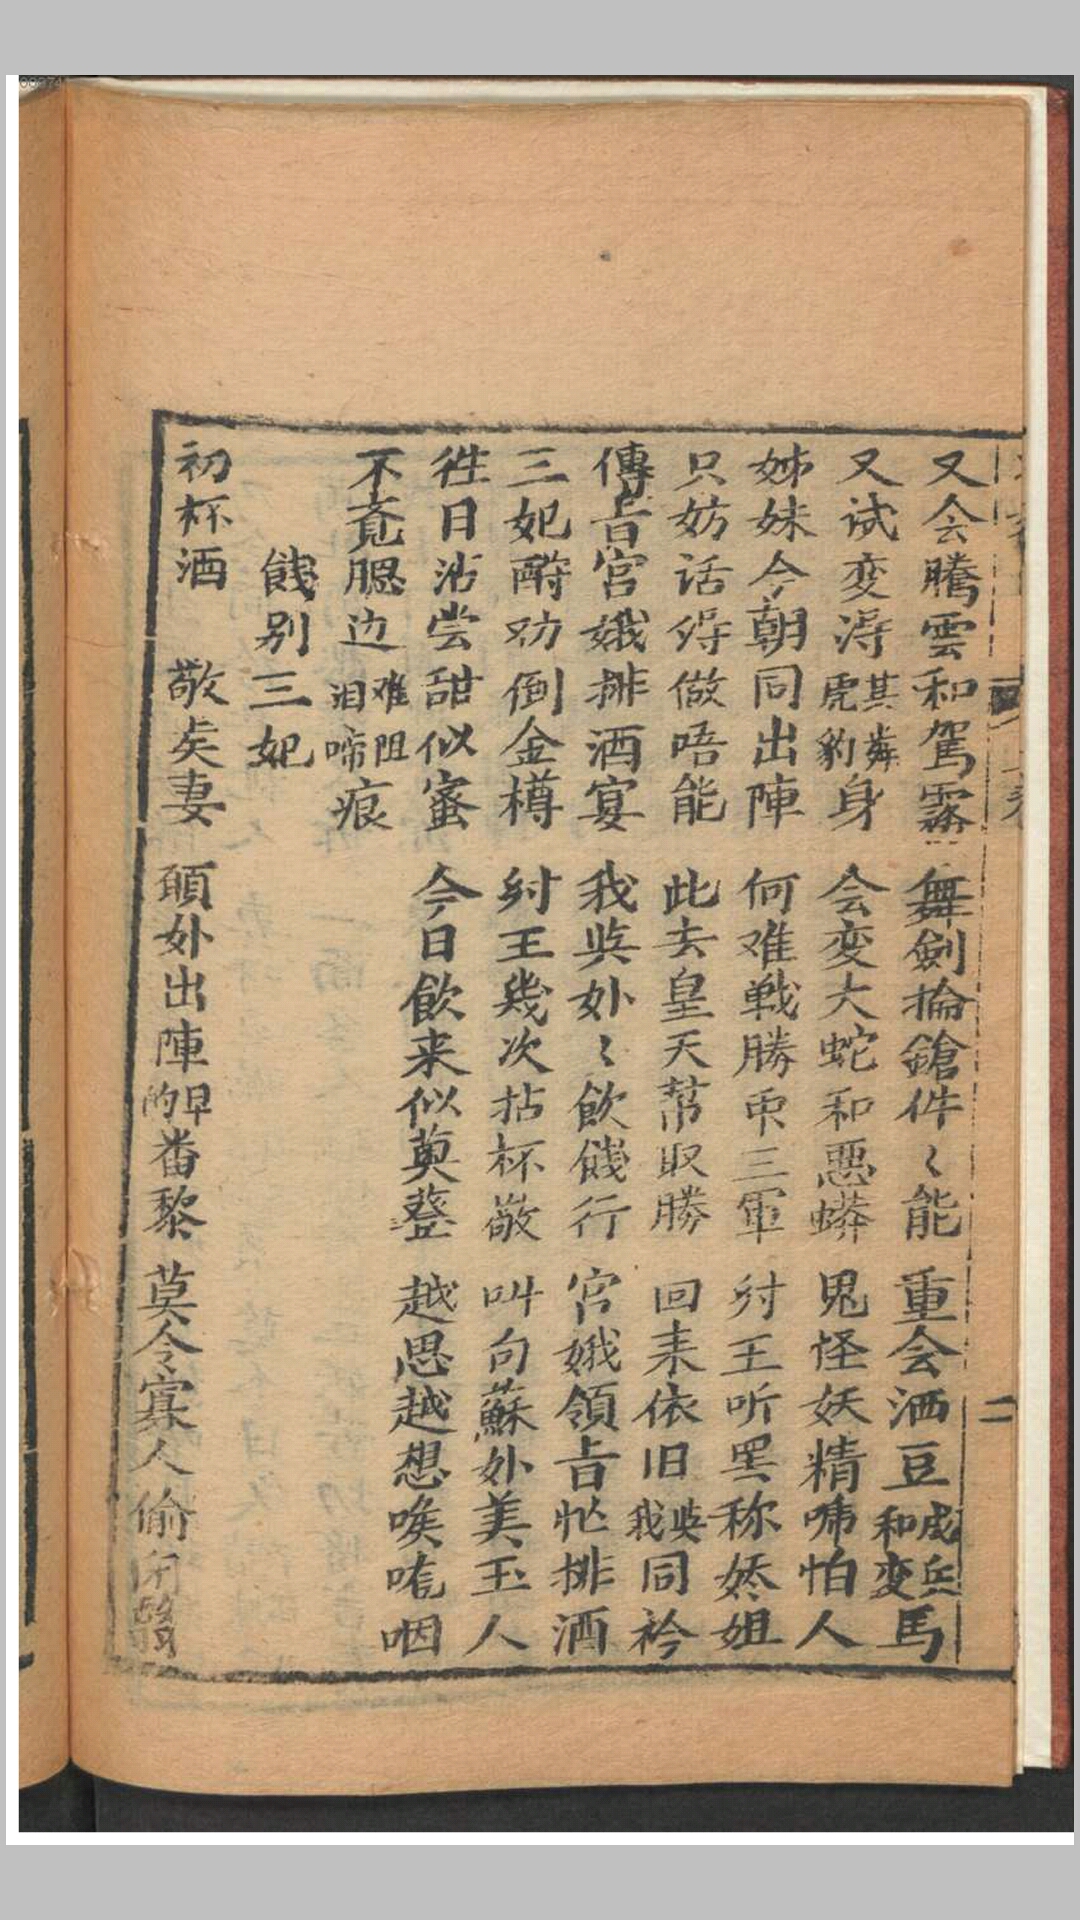 又会騰雲和駕霧 舞劍掄鎗件〻能 重会洒豆成兵和変馬
又试変淂其麟虎豹身 会変大蛇和惡蟒 鬼怪妖精啼怕人
姊妹今朝同出陣 何难戰勝帀三軍 紂王听罢称娇姐
只妨话得做唔能 此去皇天幇取勝 回来依旧共我同衿
傳旨宮娥排酒宴 我共外〻飲餞行 宮娥領旨忙排酒
三妃酧劝倒金樽 紂王幾次拈杯敬 叫句蘇外美玉人
徃日沾尝甜似蜜 今日飲来似莄䔲 越思越想唉唂咽
不竟腮边难阻泪啼痕
餞别三妃
初杯酒 敬矣妻 頋外出陣早的畨黎 莫令寡人偷
二